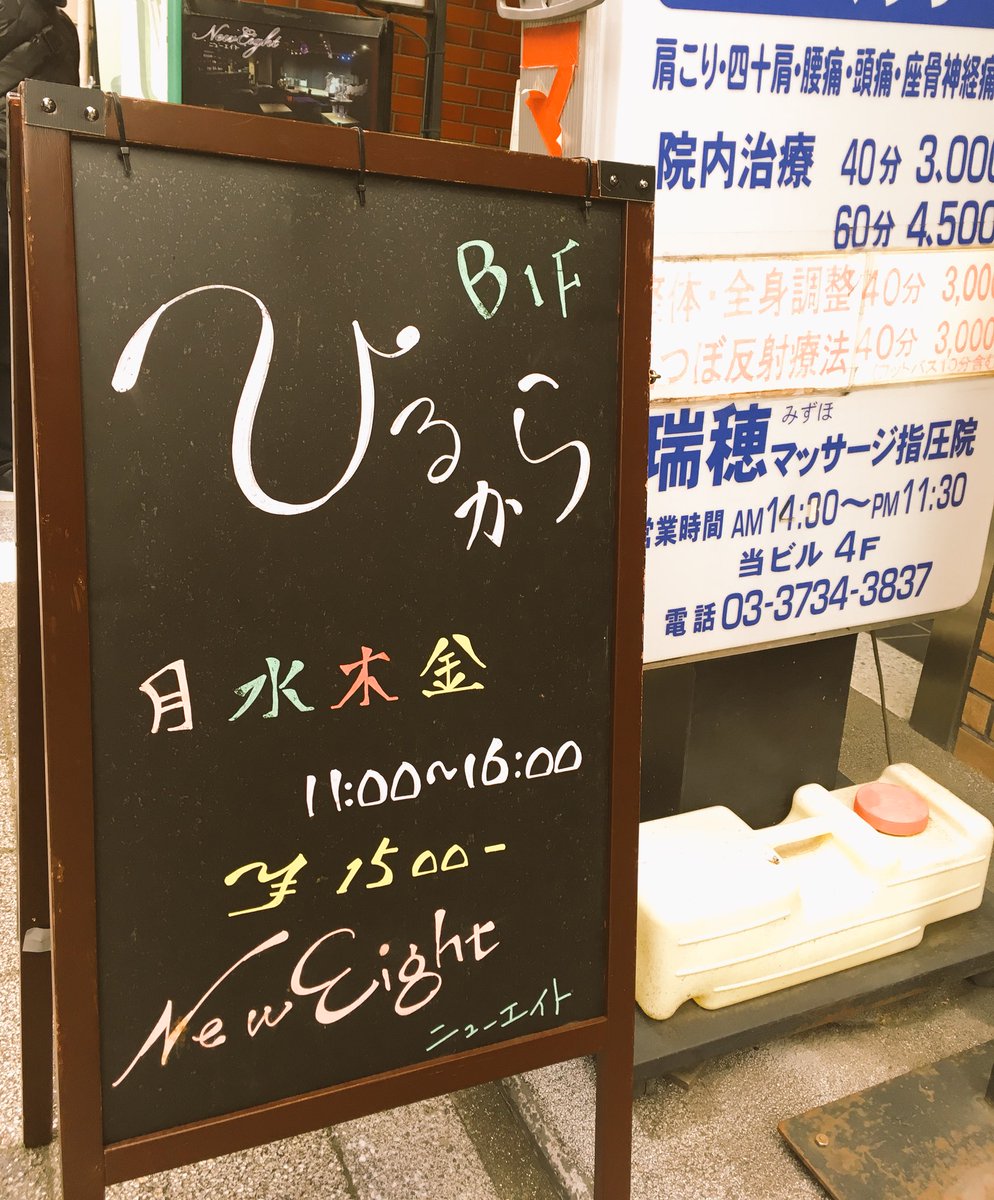 New Eight
ニューエイト
B1F
ひるから
月 水 木 金
11:00~16:00
¥1500-
New Eight
ニューエイト
肩こり・四十肩・腰痛・頭痛・座骨神経痛
院内治療 40分 3.000
60分 4.500
体・全身調整 40分 3,000
つぼ反射療法 40分 3,000
(フットバス10分含む
みずほ
瑞穂マッサージ指圧院
営業時間 AM14:30〜PM11:30
当ビル 4F
電話 03-3734-3837